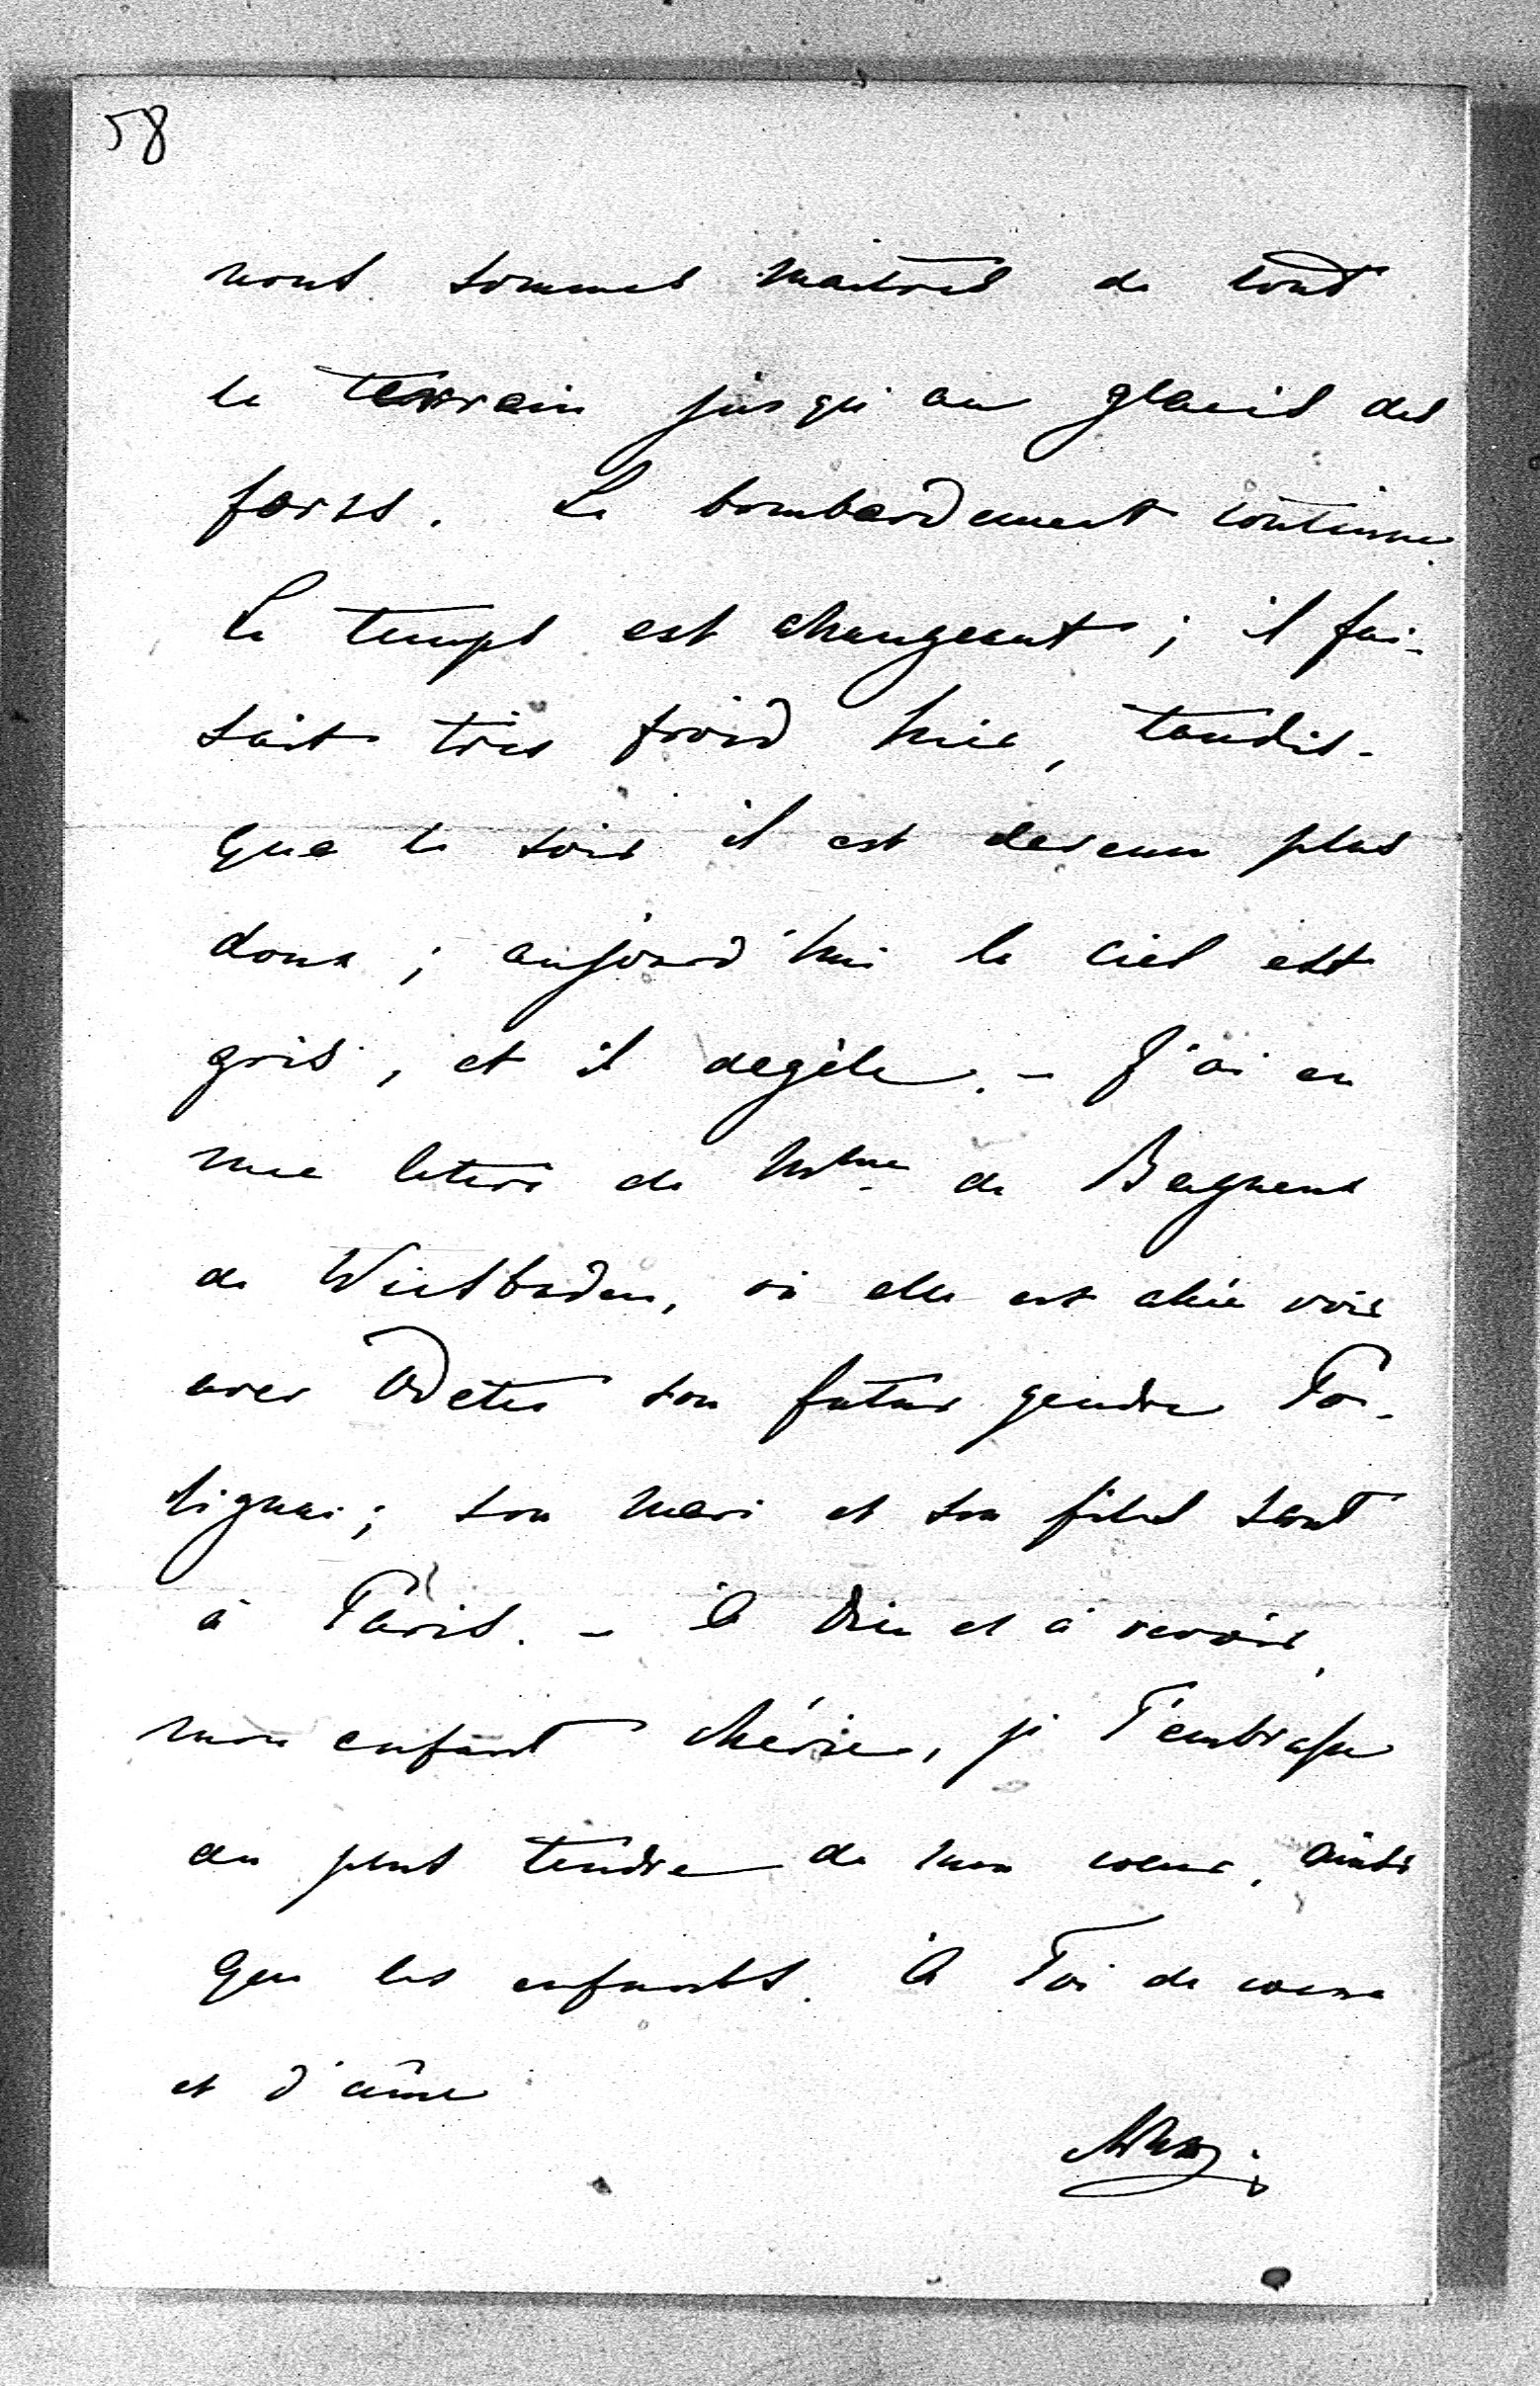 58
nous sommes maitres de tout
le terrain jusqu'au glacis des
forts. Le bombardement continue.
Le temps est changeant; il fai-
sait très froid hier, tandis-
que le soir il est devenu plus
doux; aujourd'hui le ciel est
gris, et il dégèle. – J'ai eu
une lettre de Mme de Bagneux
de Wiesbaden, où elle est allée voir
avec Odette son futur gendre Po-
lignac; son mari et son fils sont
à Paris. – à Dieu et à revoir,
mon enfant chérie, je T'embrasse
du plus tendre de mon coeur, ainsi
que les enfants. à Toi de coeur
et d'âme